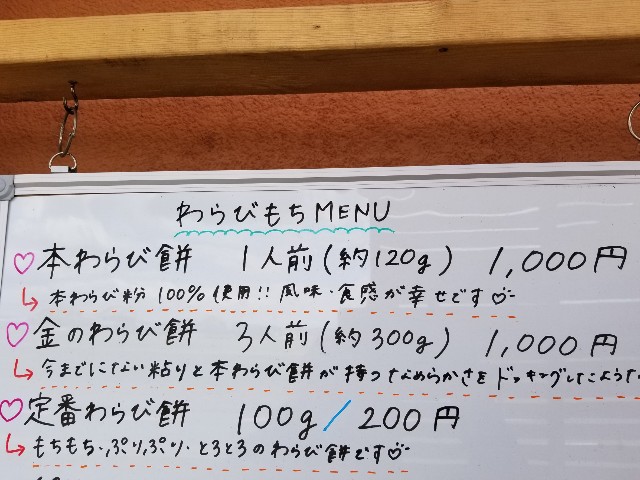 わらびもちMENU
本わらび餅 1人前(約120g) 1,000円
本わらび粉 100%使用!! 風味・食感が幸せです
金のわらび餅 3人前(約300g) 1,000円
今までにない粘りと本わらび餅が持つなめらかさをドッキングしたような
定番わらび餅 100g/200円
もちもち・ぷりぷり・とろとろのわらび餅です